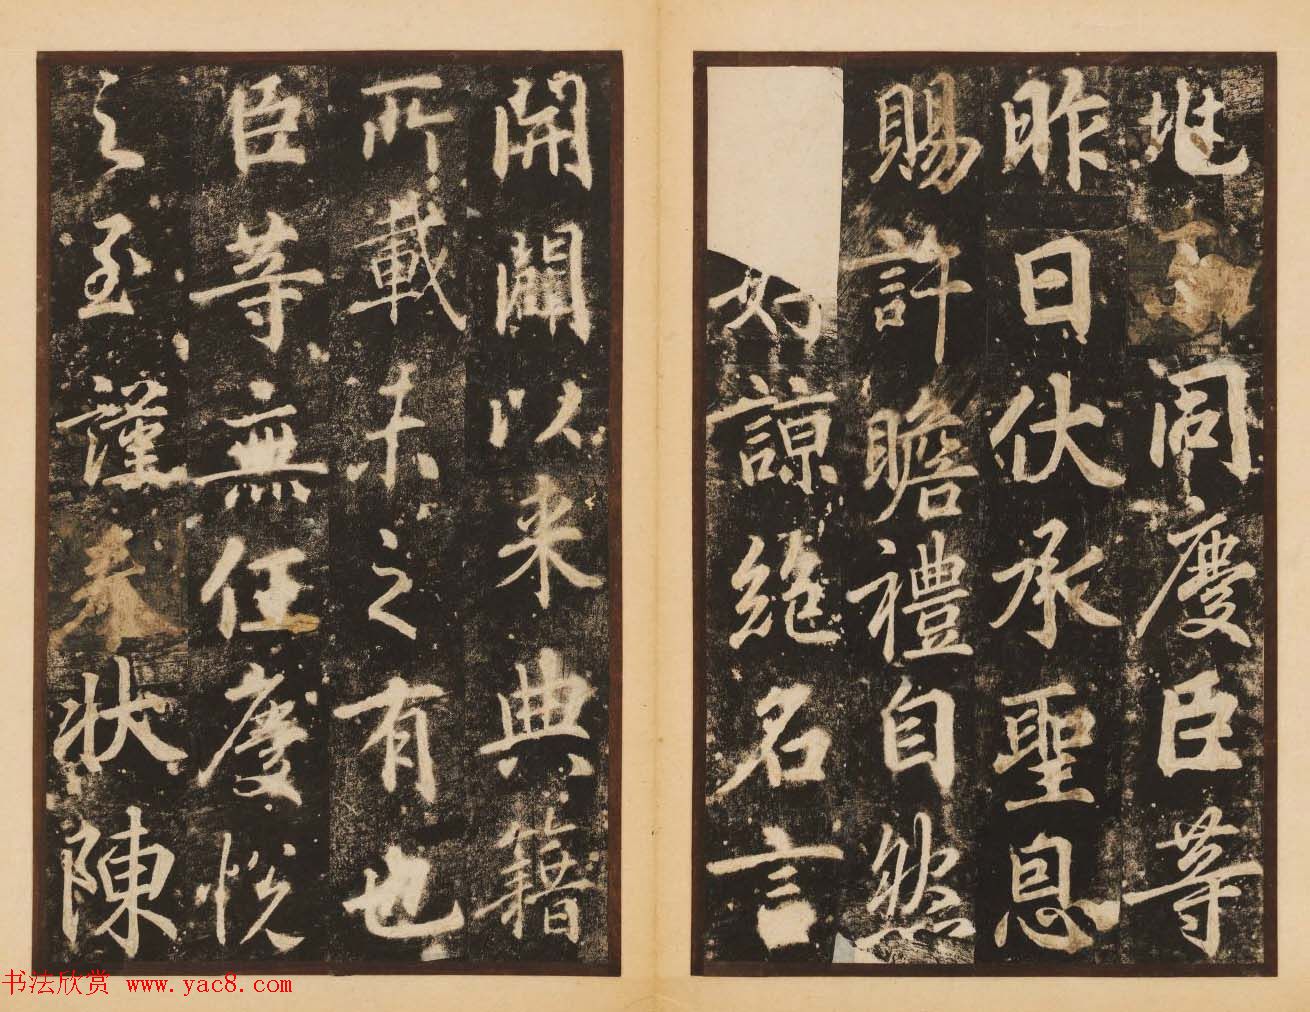 地
同慶臣等
昨日伏承聖恩
賜許瞻禮自然
妙諒絶名言
開闢以来典籍
所載未之有也
臣等無任慶悅
之至謹奉狀陳
书法欣赏 www.yac8.com